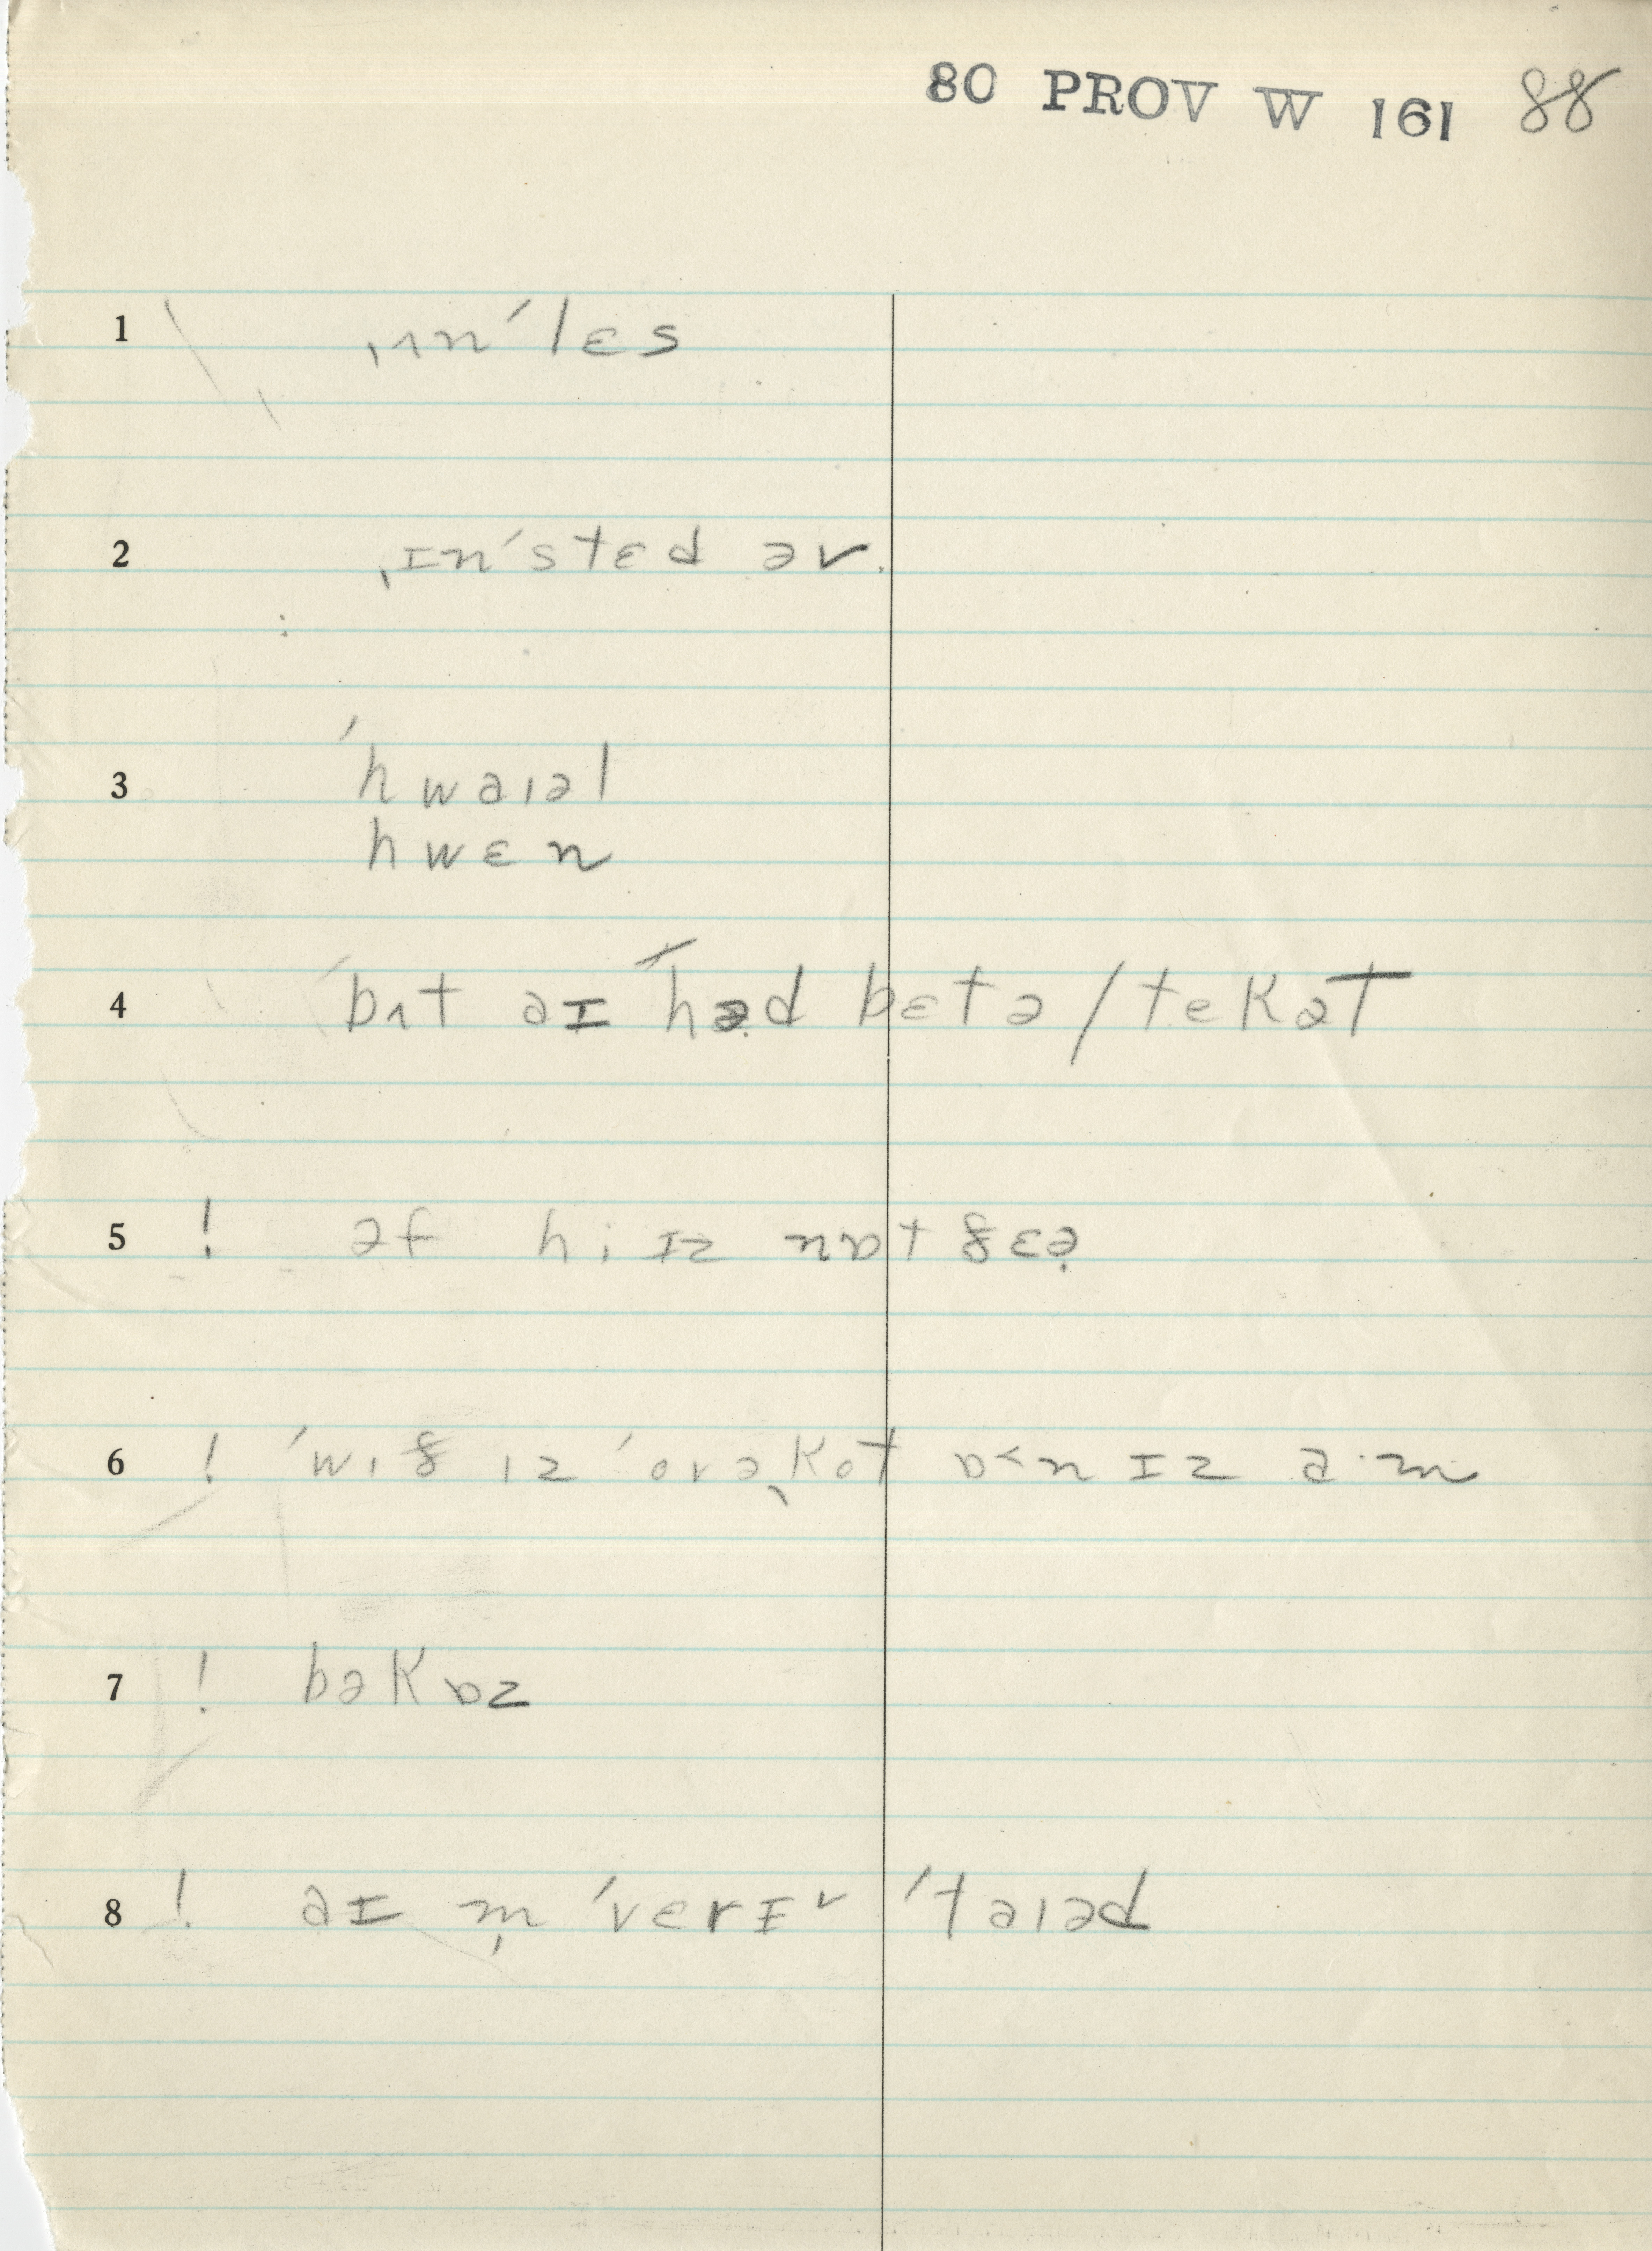 80 PROV W 161 88
1 ˌʌnˈlɛs
2 ˌɪnˈstɛd əv
3 ˈhwaɪəl
hwɛn
4 ˈbʌt aɪ ˈhəd bɛtə/tekət
5 ! əf hi ɪz nɒt ðɛə̣
6 ! ˈwɪð ɪz ˈovəˌkot ɒ˂n ɪz a·m
7 ! bəkɒz
8 ! aɪ m̩ ˈverɪ˅ ˈtaɪəd